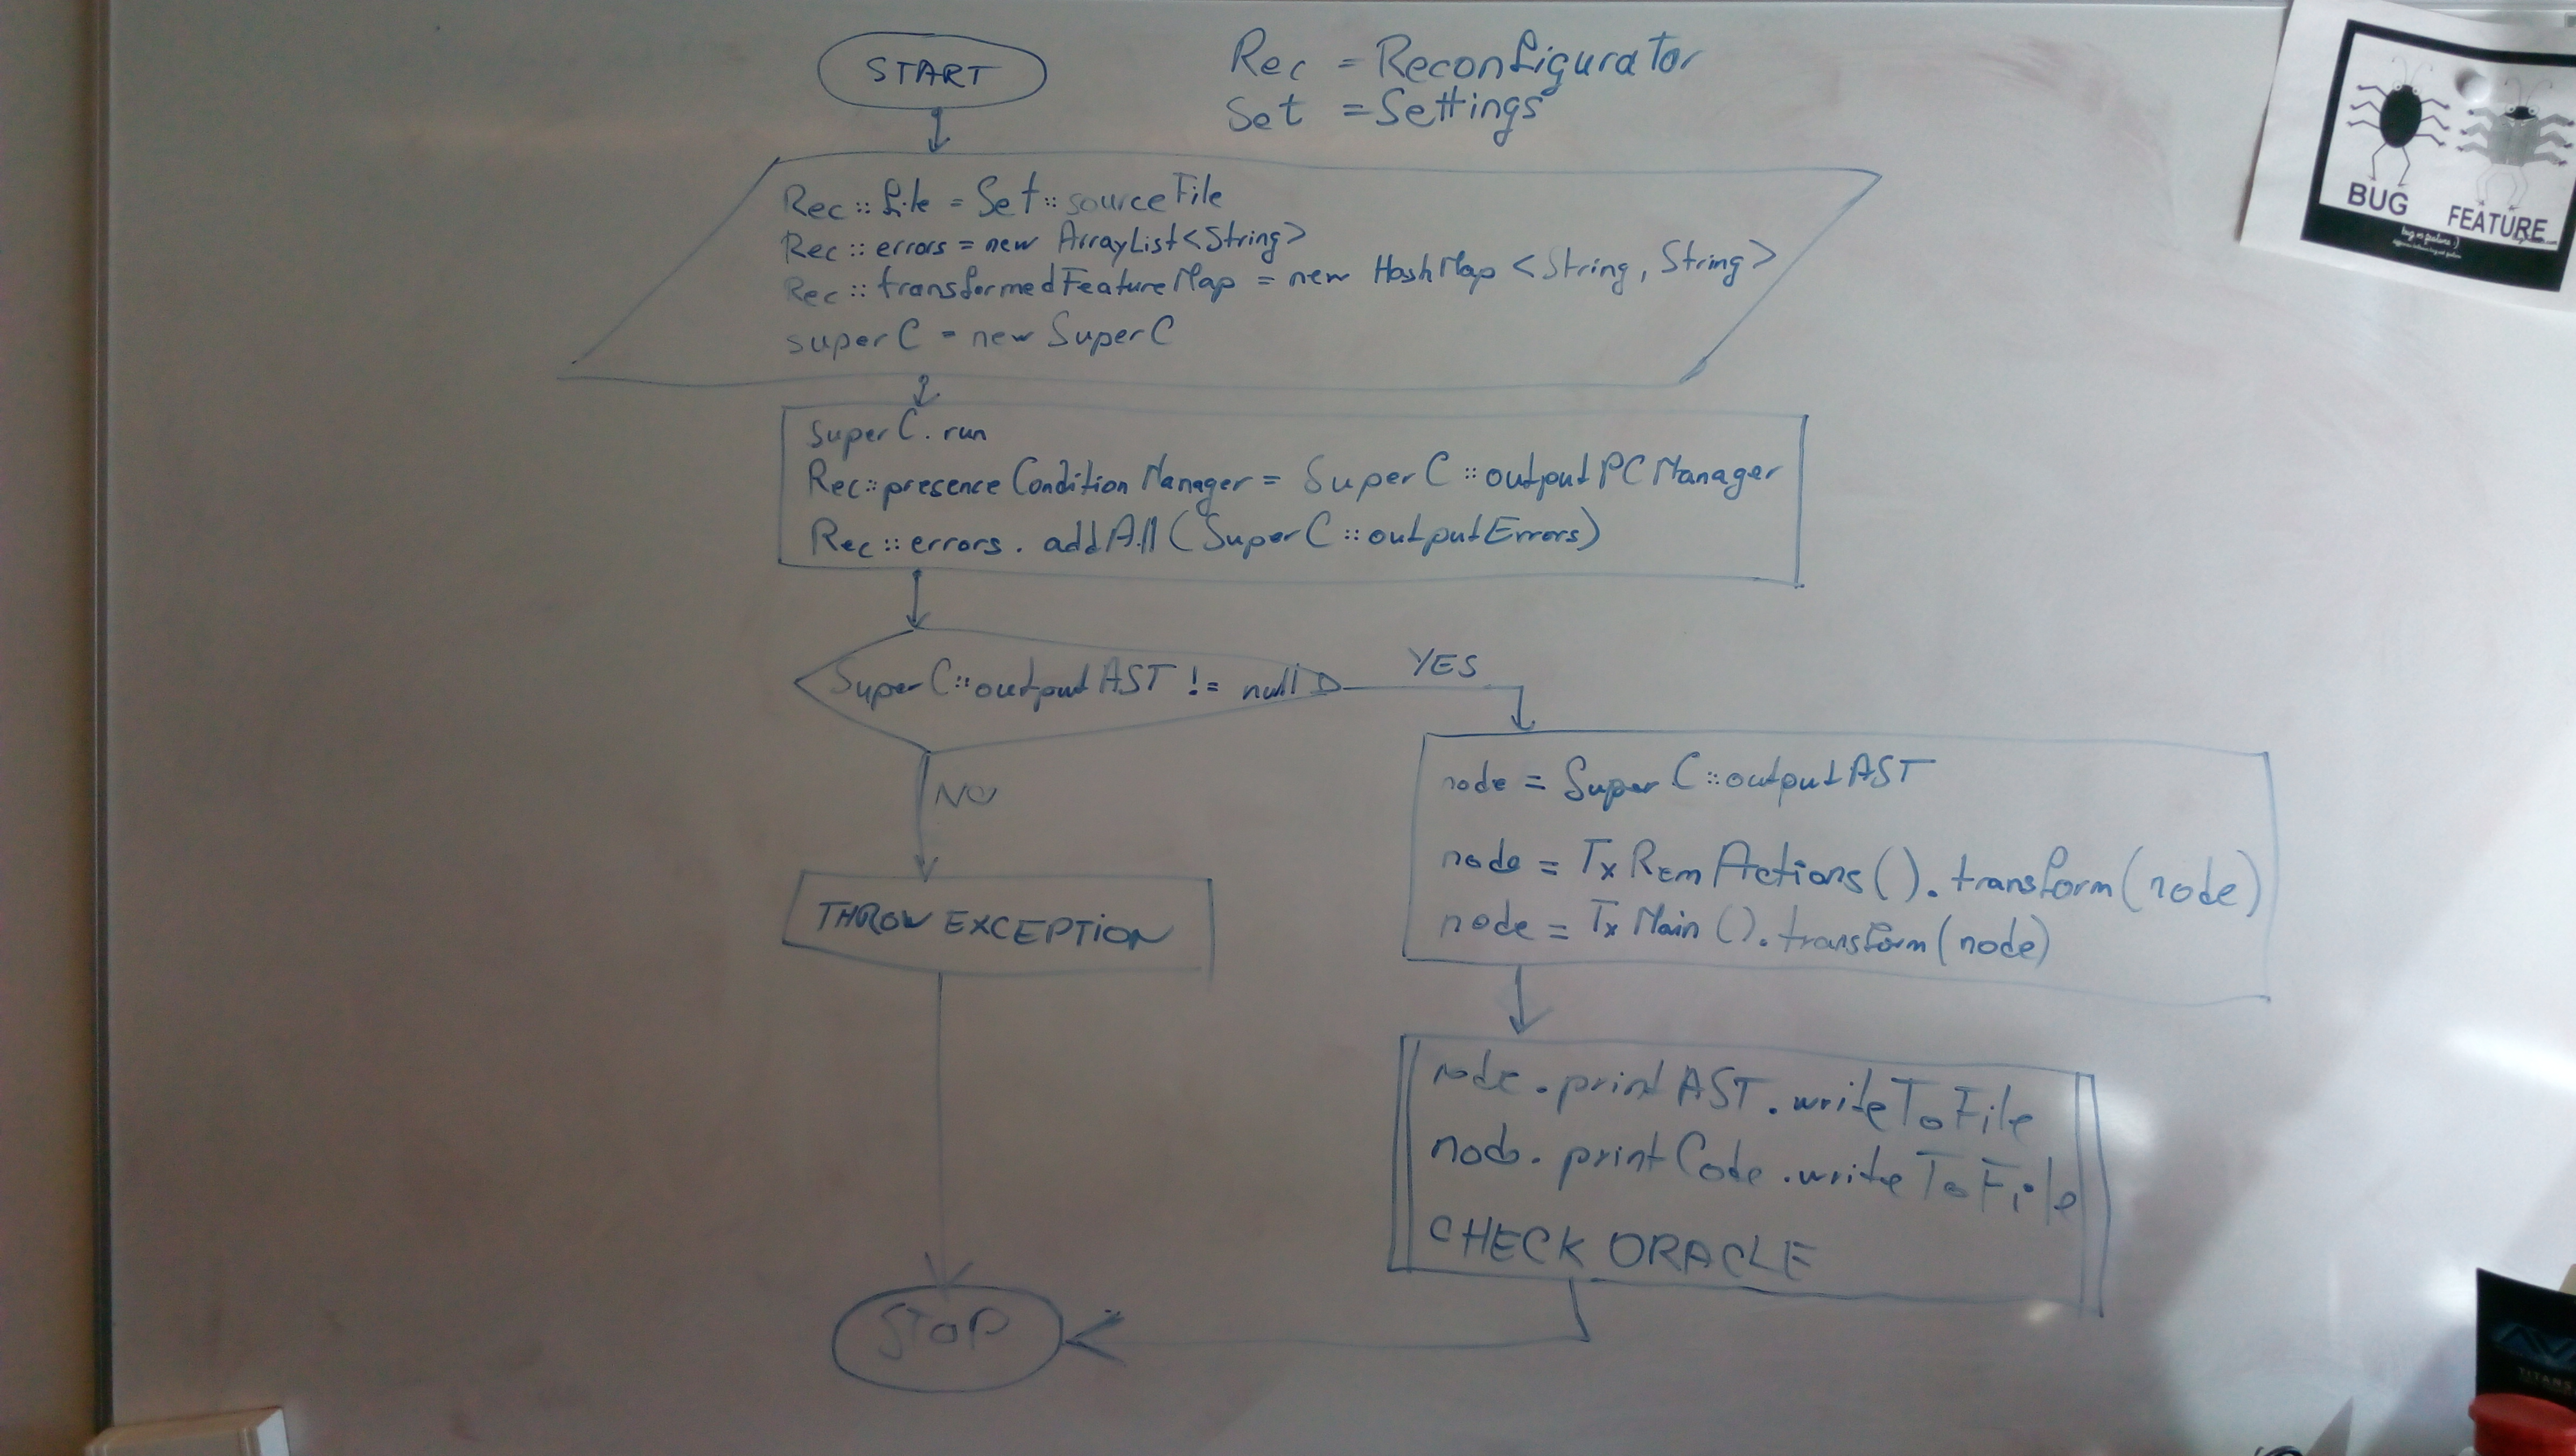 START
Rec = Reconfigurator
Set = Settings
Rec :: file = Set :: sourceFile
Rec :: errors = new ArrayList<String>
Rec :: transformedFeatureMap = new HashMap <String, String>
superC = new SuperC
SuperC. run
Rec :: presenceConditionManager = SuperC :: outputPCManager
Rec :: errors. addAll (SuperC :: outputErrors)
SuperC :: outputAST != null
YES
NO
node = SuperC :: outputAST
node = TxRemActions(). transform(node)
node = TxMain(). transform(node)
THROW EXCEPTION
node. printAST. writeToFile
node. printCode. writeToFile
CHECK ORACLE
STOP
BUG
FEATURE
bug vs feature :)
TITANS